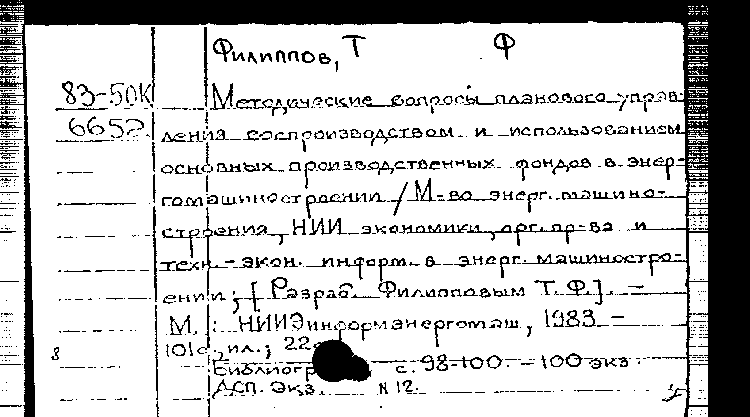 Филиппов, Т Ф
83-50К Методические вопросы планового управ-
6652 ления воспроизводством и использованием
основных производственных фондов в энер-
гомашиностроении / М-во энерг. машино-
строения, НИИ экономики, орг. пр-ва и
техн.-экон. информ. в энерг. машиностро-
ении; [Разраб. Филипповым Т. Ф.]. -
М. : НИИЭинформэнергомаш, 1983 -
101с., ил.; 22
8
Библиогр с. 98-100. - 100 экз.
Дсп. Экз. N 12.